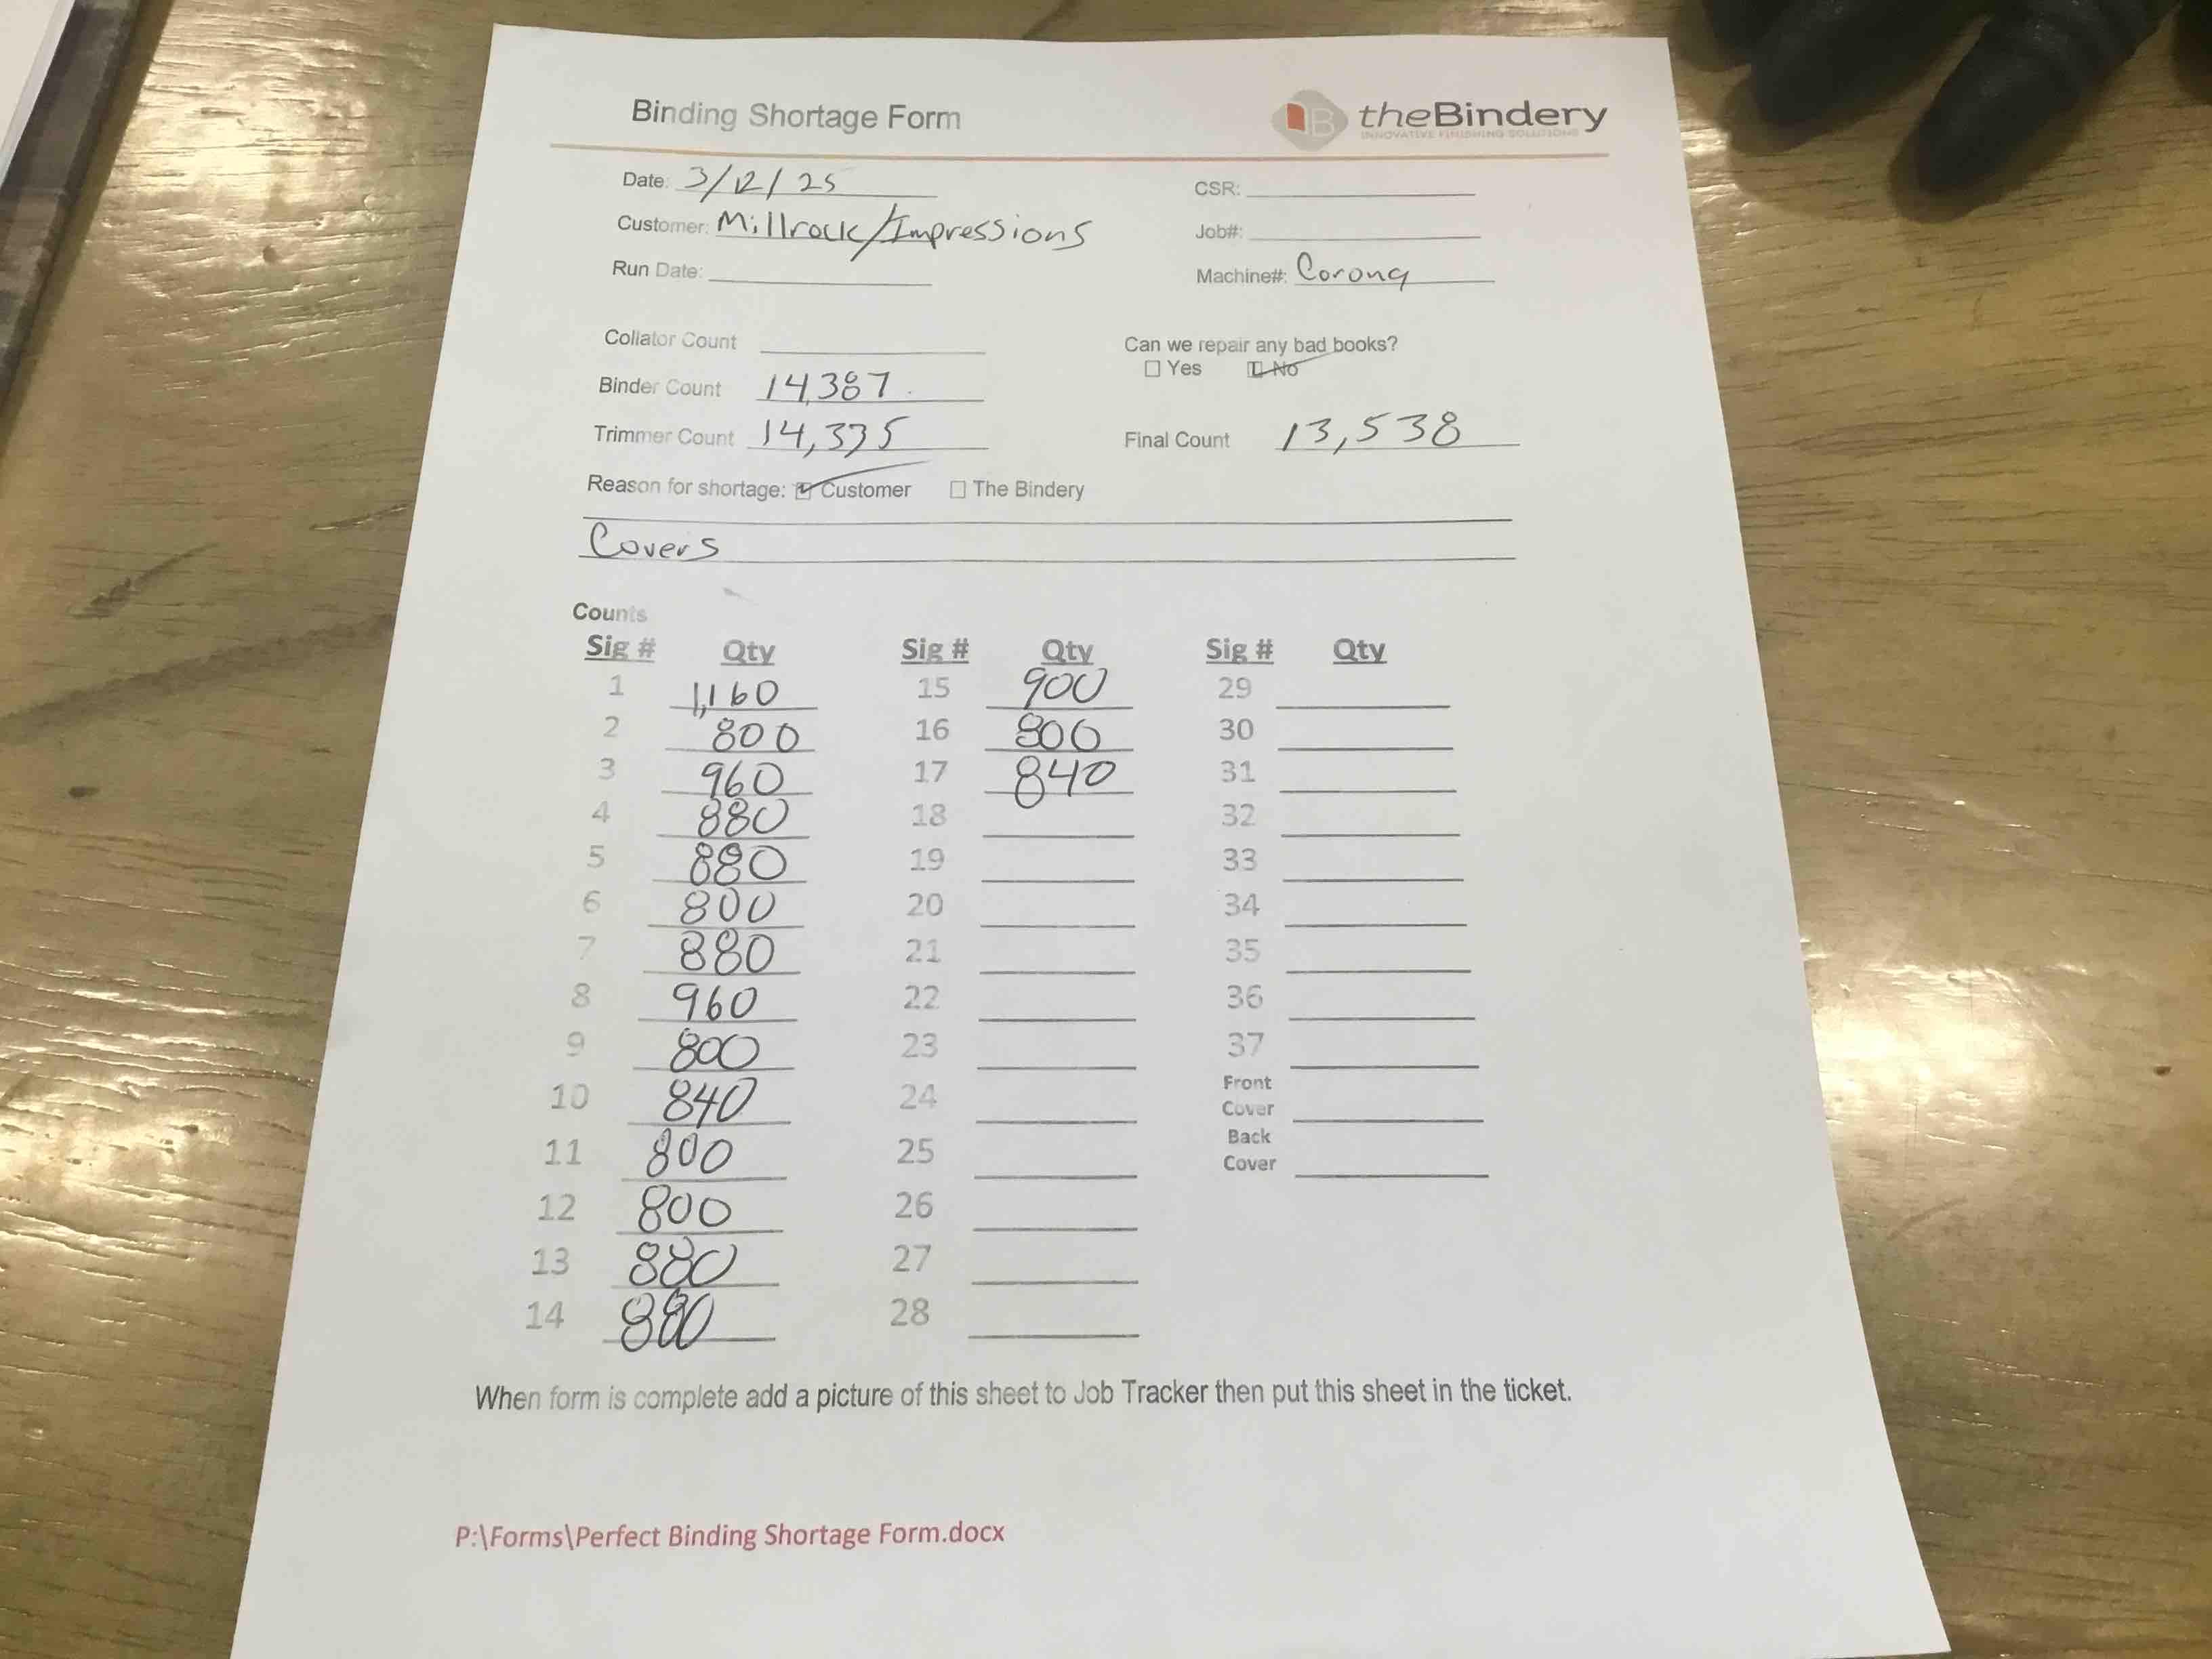 Binding Shortage Form
theBindery
INNOVATIVE FINISHING SOLUTIONS
Date: 3/12/25 CSR:
Customer: Millrock/Impressions Job#:
Run Date: Machine#: Corona
Collator Count Can we repair any bad books?
☐ Yes ☑ No
Binder Count 14,387
Trimmer Count 14,335 Final Count 13,538
Reason for shortage: ☑ Customer ☐ The Bindery
Covers
Counts
Sig # Qty Sig # Qty Sig # Qty
1 1,160 15 900 29
2 800 16 800 30
3 960 17 840 31
4 880 18 32
5 880 19 33
6 800 20 34
7 880 21 35
8 960 22 36
9 800 23 37
10 840 24 Front Cover
11 800 25 Back Cover
12 800 26
13 880 27
14 28
When form is complete add a picture of this sheet to Job Tracker then put this sheet in the ticket.
P:\Forms\Perfect Binding Shortage Form.docx